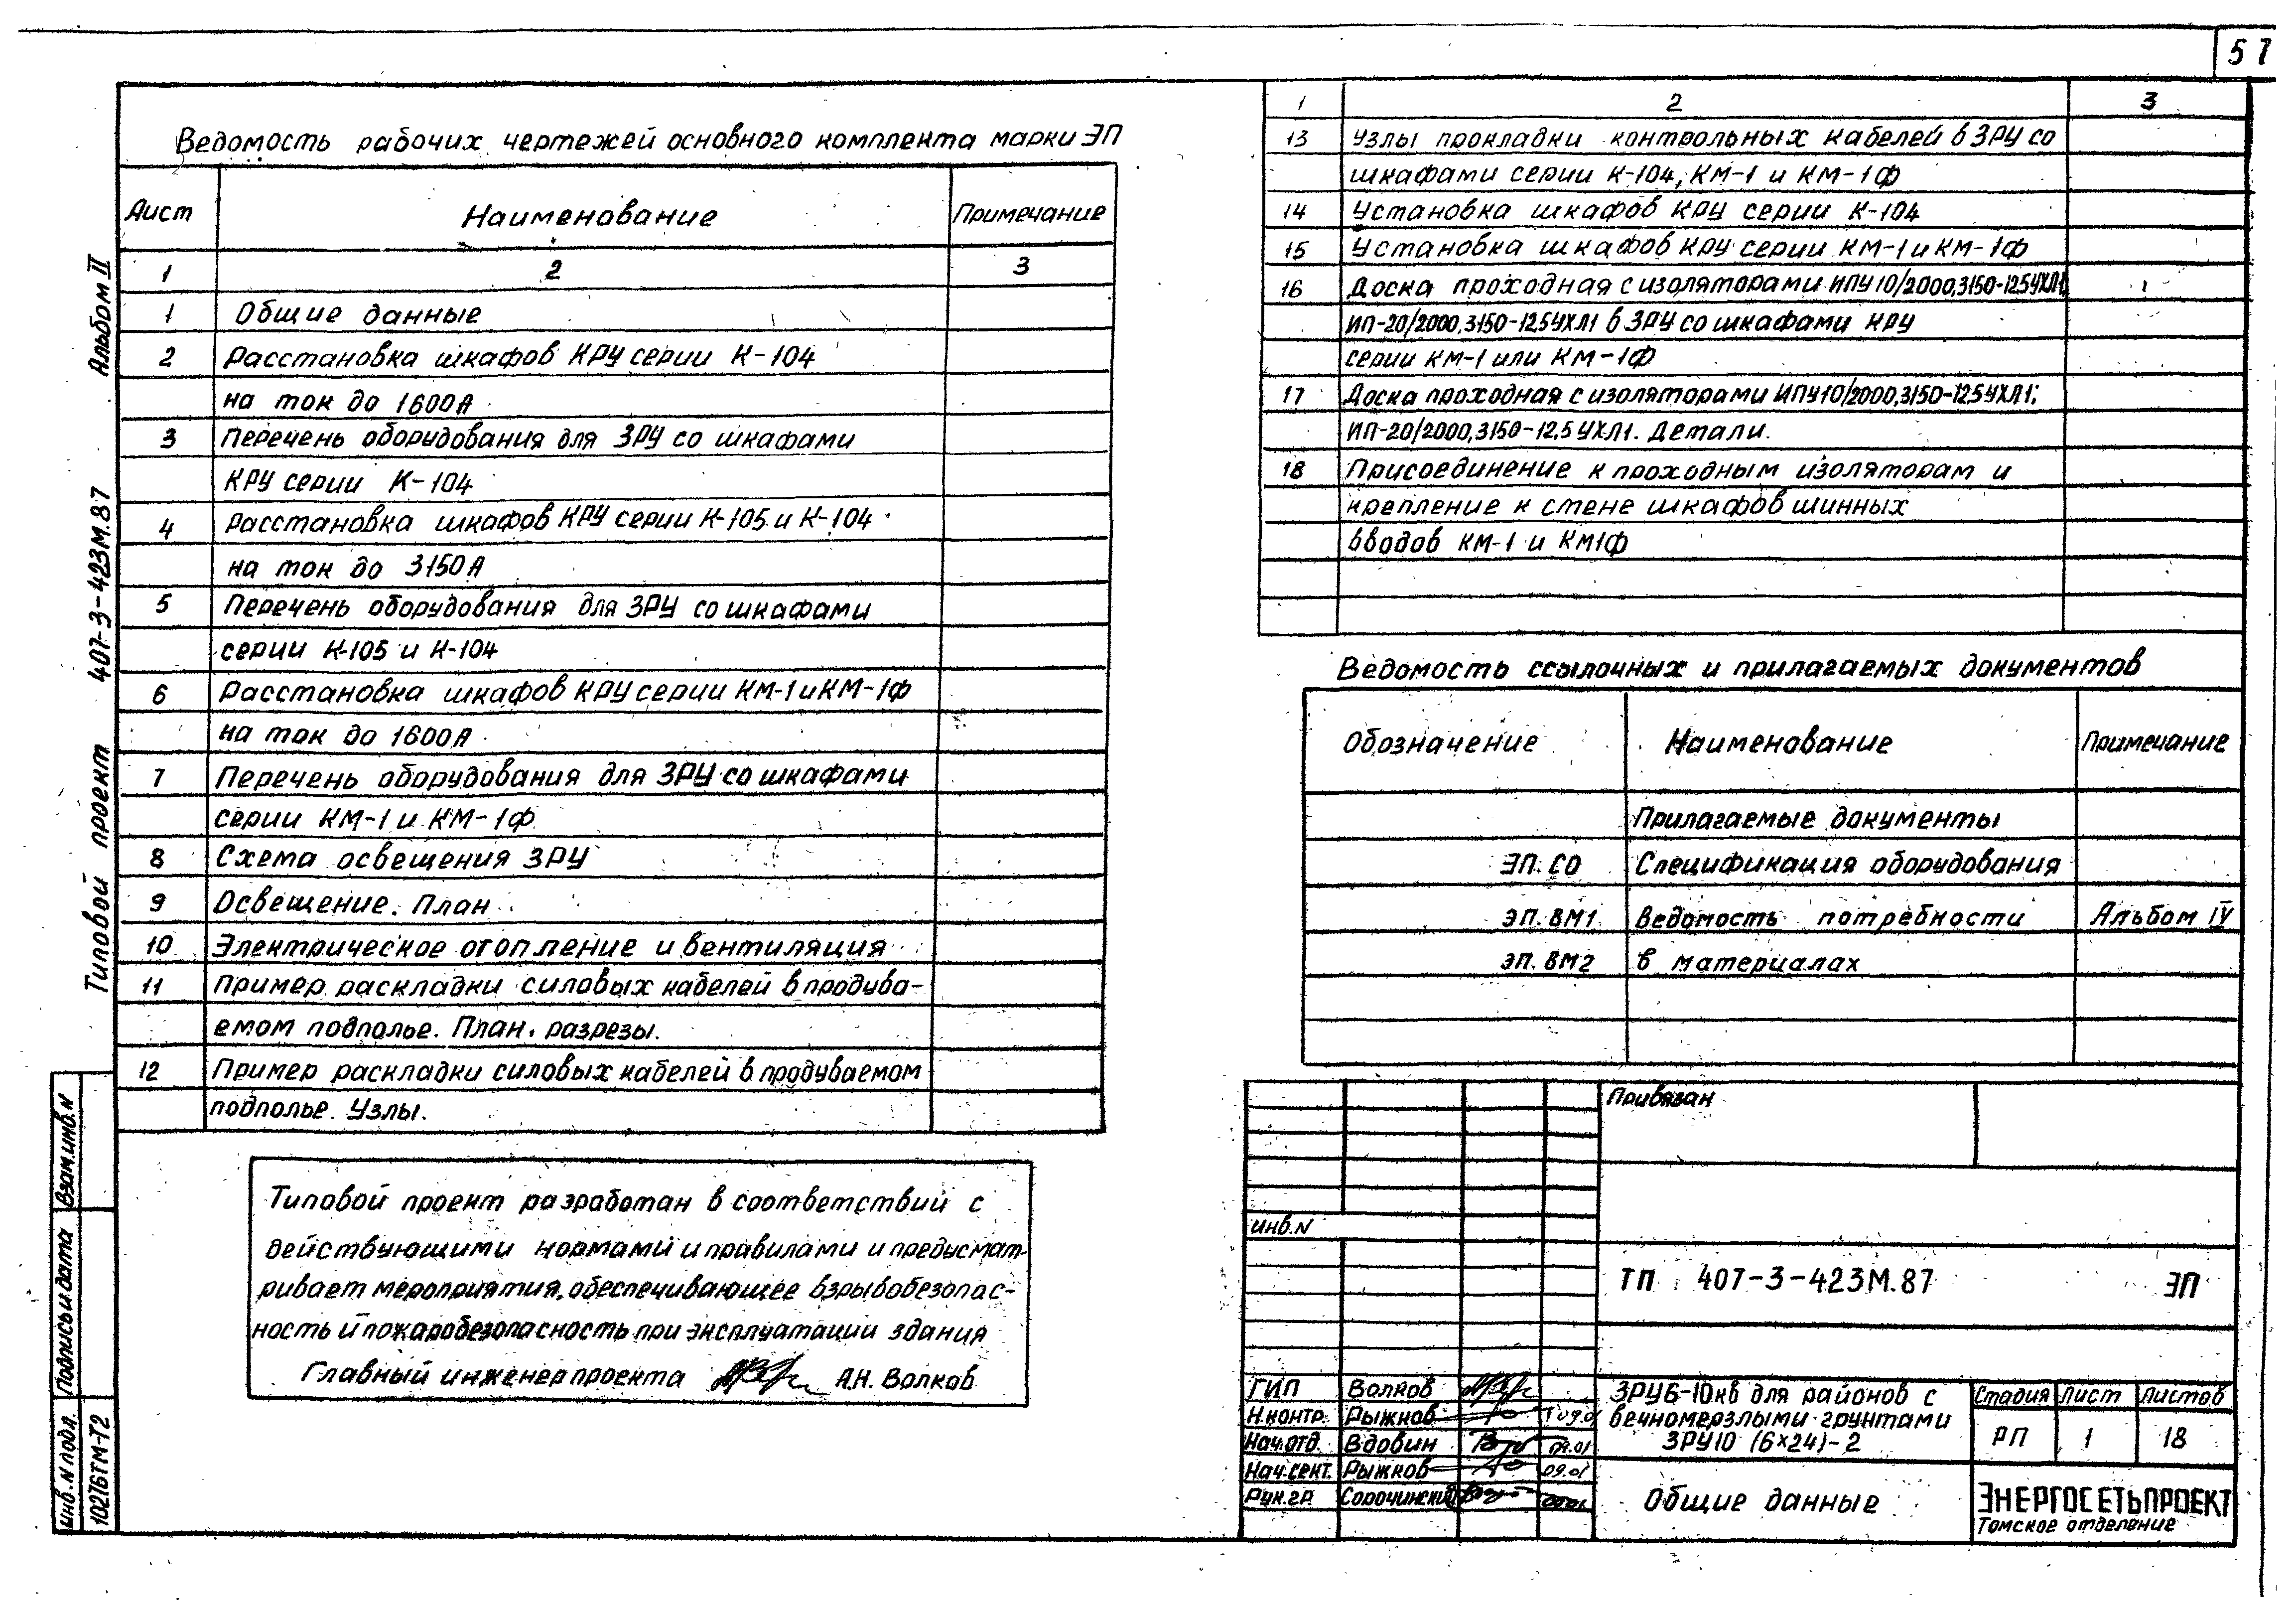 57
Ведомость рабочих чертежей основного комплекта марки ЭП
Лист Наименование Примечание
1 2 3
1 Общие данные
2 Расстановка шкафов КРУ серии К-104
на ток до 1600А
3 Перечень оборудования для ЗРУ со шкафами
КРУ серии К-104
4 Расстановка шкафов КРУ серии К-105 и К-104
на ток до 3150А
5 Перечень оборудования для ЗРУ со шкафами
серии К-105 и К-104
6 Расстановка шкафов КРУ серии КМ-1 и КМ-1ф
на ток до 1600А
7 Перечень оборудования для ЗРУ со шкафами
серии КМ-1 и КМ-1ф
8 Схема освещения ЗРУ
9 Освещение. План
10 Электрическое отопление и вентиляция
11 Пример раскладки силовых кабелей в продува-
емом подполье. План. разрезы.
12 Пример раскладки силовых кабелей в продуваемом
подполье. Узлы.
Типовой проект разработан в соответствий с
действующими нормами и правилами и предусмат-
ривает мероприятия, обеспечивающее взрывобезопас-
ность и пожаробезопасность при эксплуатации здания
Главный инженер проекта А.Н. Волков
1 2 3
13 Узлы прокладки контрольных кабелей в ЗРУ со
шкафами серии К-104, КМ-1 и КМ-1ф
14 Установка шкафов КРУ серии К-104
15 Установка шкафов КРУ серии КМ-1 и КМ-1ф
16 Доска проходная с изоляторами ИПУ10/2000,3150-12.5УХЛ1,
ИП-20/2000,3150-12,5УХЛ1 в ЗРУ со шкафами КРУ
серии КМ-1 или КМ-1ф
17 Доска проходная с изоляторами ИПУ10/2000,3150-12.5УХЛ1;
ИП-20/2000,3150-12,5УХЛ1. Детали.
18 Присоединение к проходным изоляторам и
крепление к стене шкафов шинных
вводов КМ-1 и КМ1ф
Ведомость ссылочных и прилагаемых документов
Обозначение Наименование Примечание
Прилагаемые документы
ЭП. СО Спецификация оборудования
ЭП. ВМ1 Ведомость потребности Альбом IV
ЭП. ВМ2 в материалах
Привязан
инв.N
ТП 407-3-423М.87 ЭП
ГИП Волков
Н.контр. Рыжков
Нач.отд. Вдовин 09.01
Нач.сект. Рыжков 09.01
Рук.гр Сорочинский
ЗРУ6-10кв для районов с
вечномерзлыми грунтами
ЗРУ10 (6×24)-2
Стадия Лист Листов
РП 1 18
Общие данные
ЭНЕРГОСЕТЬПРОЕКТ
Томское отделение
Типовой проект 407-3-423М.87 Альбом II
Инв.N подл. Подпись и дата Взам.инв.N
10216ТМ-Т2